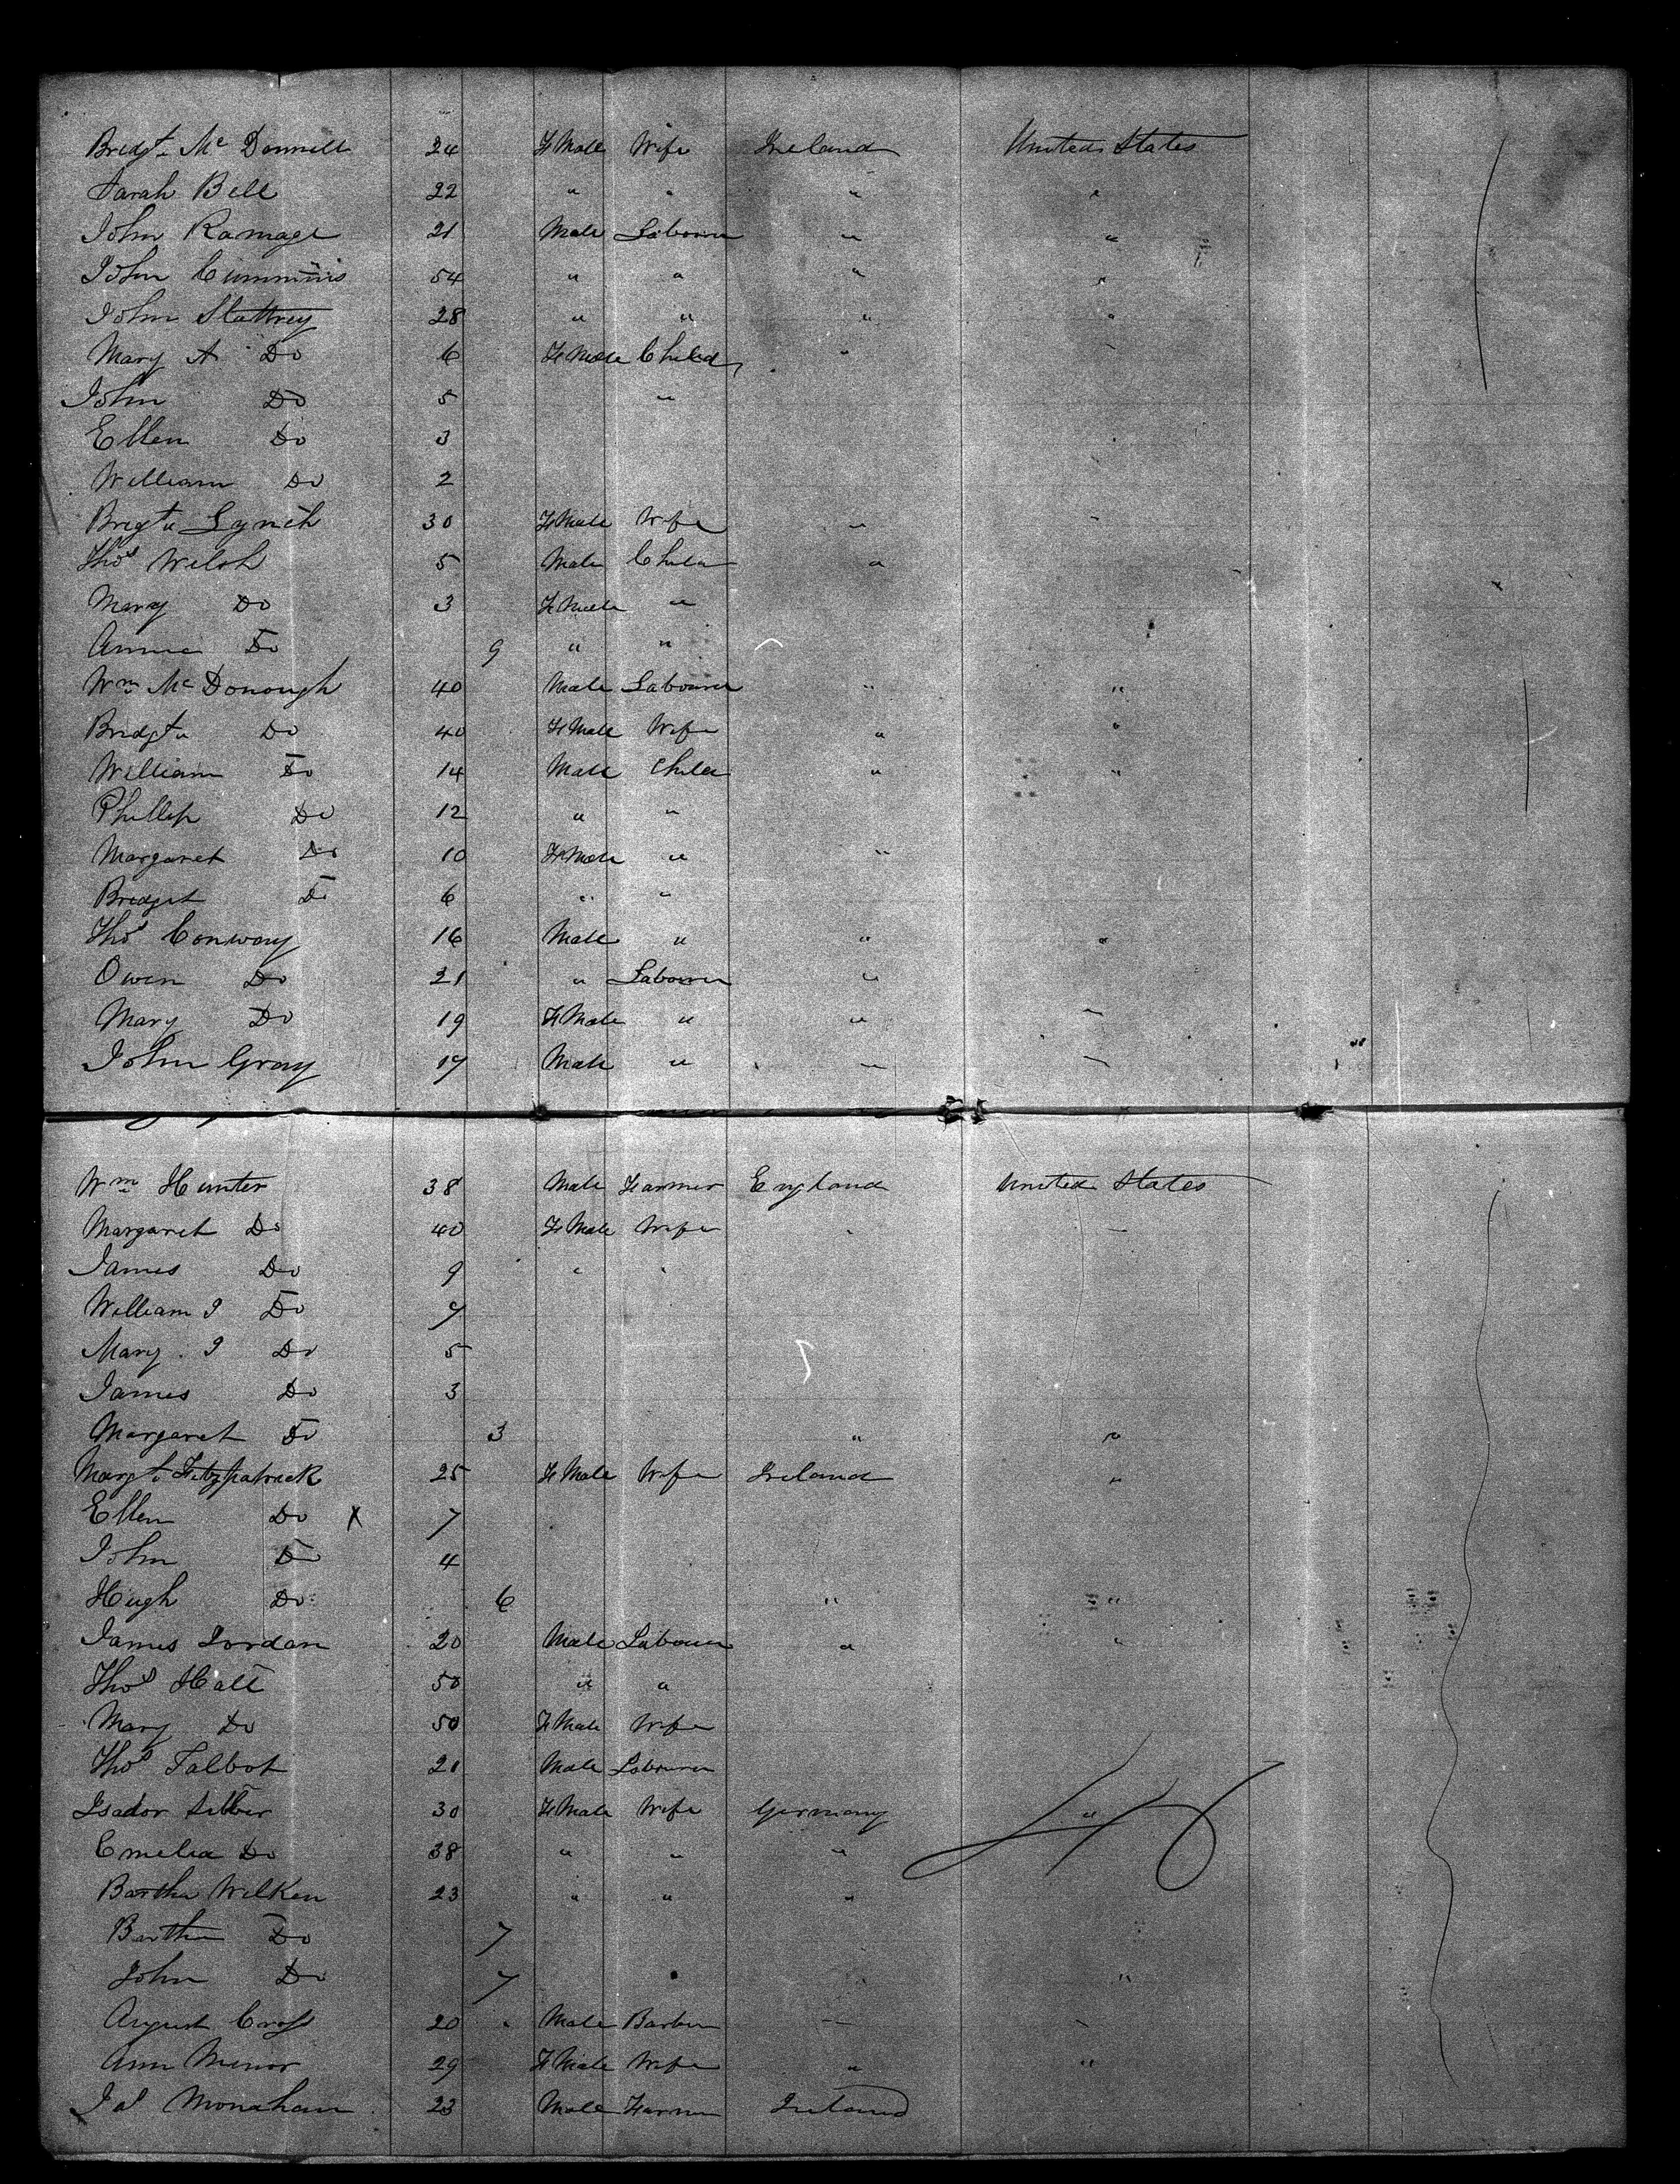 Bridgt. Mc Donnell 24 FMale Wife Ireland United States
Sarah Bell 22 " " " "
John Ramage 21 Male Labourer " "
John Cummins 54 " " " "
John Slattrey 28 " " " "
Mary A Do 6 FMale Child " "
John Do 5 "
Ellen Do 3
William Do 2
Brigt. Lynch 30 FMale Wife " "
Thos Welsh 5 Male Child "
Mary Do 3 FMale "
Annie Do 9 " "
Wm Mc Donough 40 Male Labourer " "
Bridgt. Do 40 FMale Wife " "
William Do 14 Male Child " "
Phillip Do 12 " "
Margaret Do 10 FMale " "
Bridget Do 6 " "
Thos Conway 16 Male " " "
Owen Do 21 " Labourer "
Mary Do 19 FMale " " "
John Gray 17 Male " " "
Wm Hunter 38 Male Farmer England United States
Margaret Do 40 FMale Wife " "
James Do 9 " "
William J Do 7
Mary J Do 5
James Do 3
Margaret Do 3 " "
Margt. Fitzpatrick 25 FMale Wife Ireland "
Ellen Do X 7
John Do 4
Hugh Do 6 " "
James Jordan 20 Male Labourer " "
Thos Hall 50 " "
Mary Do 50 FMale Wife
Thos Talbot 21 Male Labourer
Isador Silber 30 FMale Wife Germany "
Emelia Do 38 " " "
Bartha Wilken 23 " " "
Bartha Do 7
John Do 7 " " "
August 20 Male Barber " "
Ann Minor 29 FMale Wife " "
Jas Monaham 23 Male Farmer Ireland